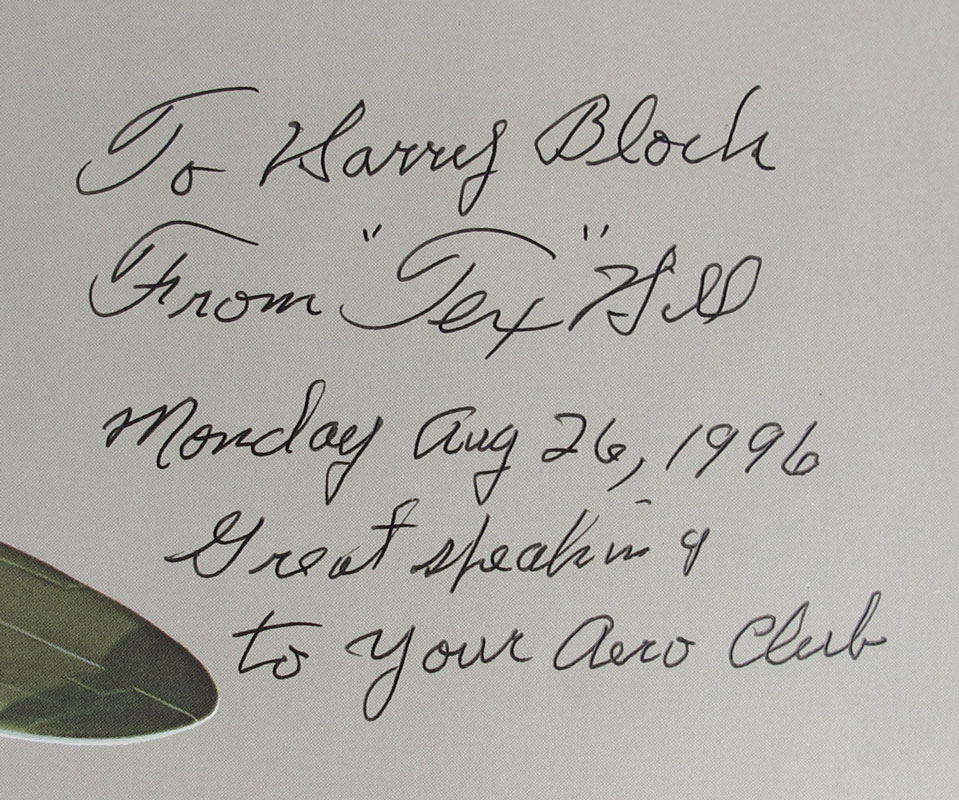 To Harry Block
From "Tex" Hill
Monday Aug 26, 1996
Great speaking
to your Aero Club